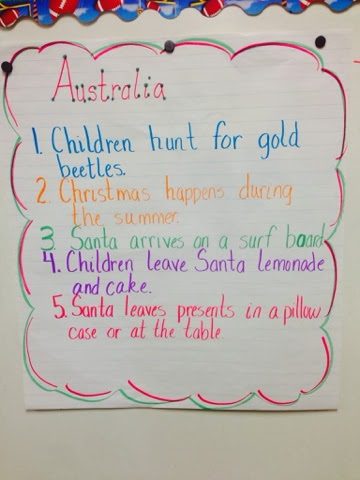 Australia
1. Children hunt for gold
beetles.
2. Christmas happens during
the summer.
3. Santa arrives on a surf board
4. Children leave Santa lemonade
and cake.
5. Santa leaves presents in a pillow
case or at the table.